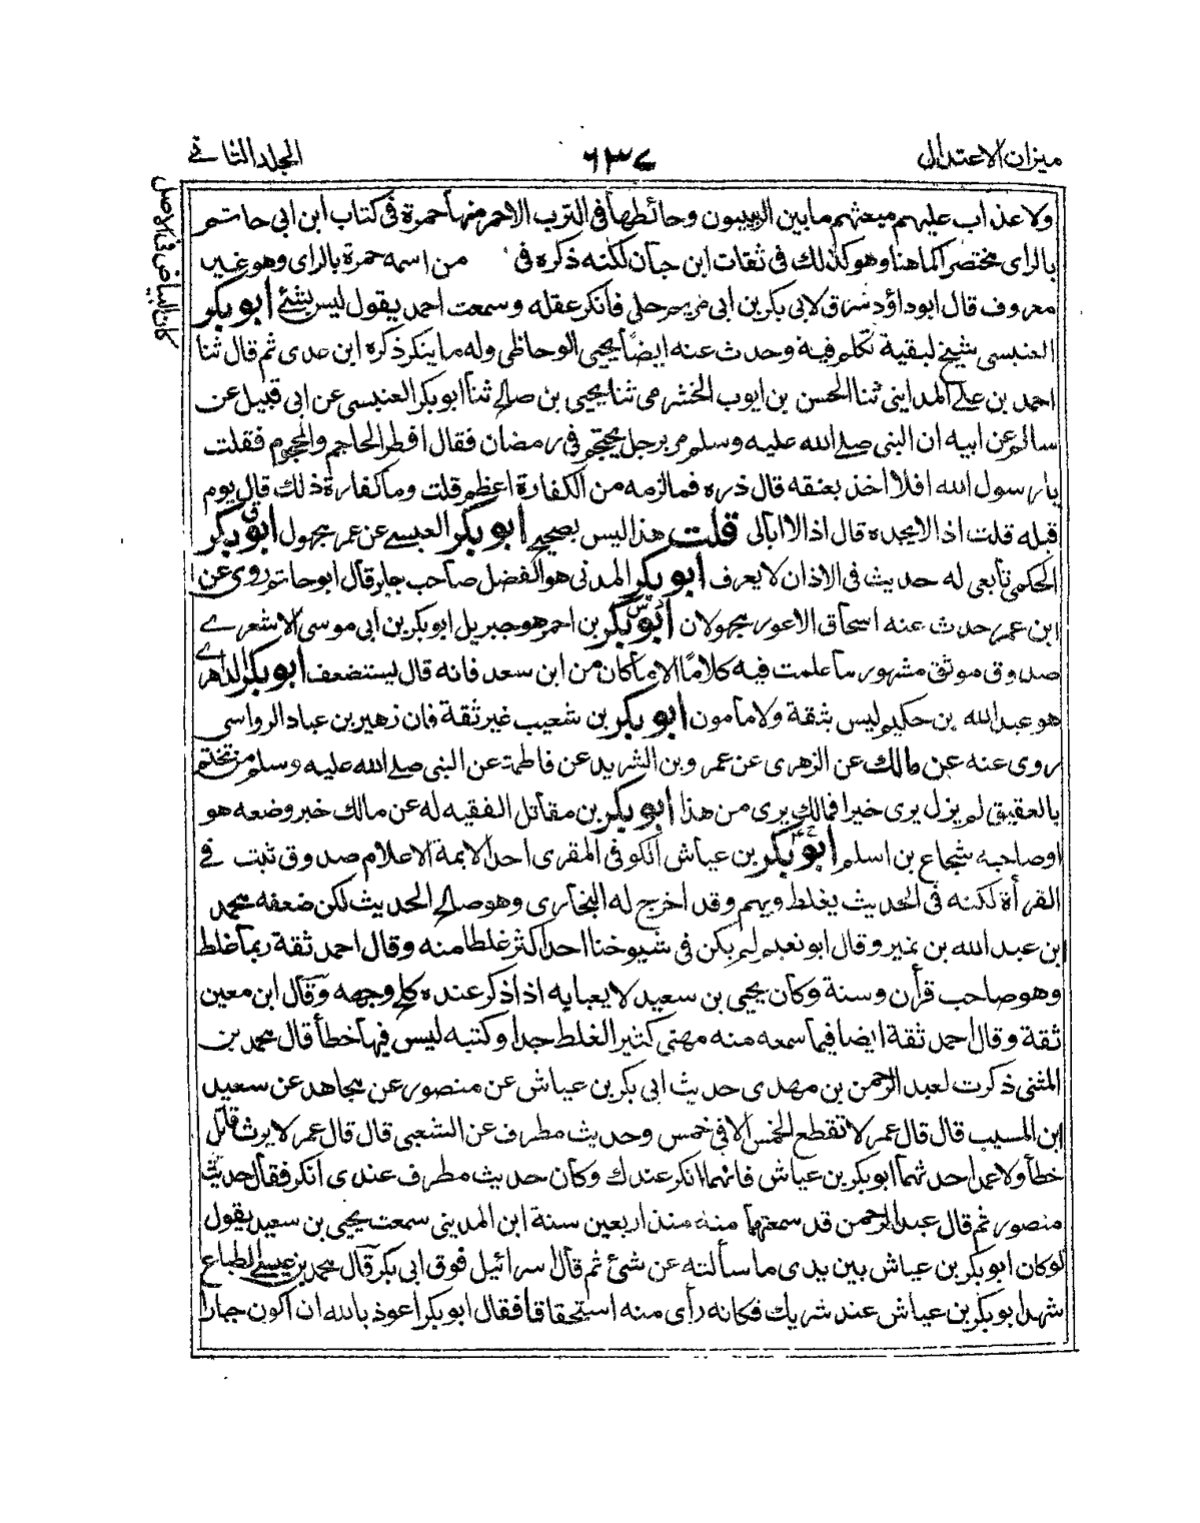 ميزان الاعتدال
٦٣٧
المجلد الثاني
كان البياض في الاصل
ولا عذاب عليهم مبعثهم ما بين الزيتون وحائطها في الترب الاحمر منها حمرة في كتاب ابن ابي حاتم
بالراى مختصرا كما هنا وهو كذلك في ثقات ابن حبان لكنه ذكره في من اسمه حمرة بالراى وهو غير
معروف قال ابو داؤد سرق لابى بكر بن ابى مريم حلى فانكر عقله وسمعت احمد يقول ليس بشئ ابو بكر
العنبسى شيخ لبقية تكلم فيه وحدث عنه ايضاً يحيى الوحاظى وله ما ينكر ذكره ابن عدى ثم قال ثنا
احمد بن على المداينى ثنا الحسن بن ايوب الخشرمى ثنا يحيى بن صالح ثنا ابو بكر العنبسى عن ابى قبيل عن
سالم عن ابيه ان النبى صلى الله عليه وسلم مر برجل يحتجم فى رمضان فقال افطر الحاجم والمحجوم فقلت
يا رسول الله افلا اخذ بعنقه قال ذره فما لزمه من الكفارة اعظم قلت وما كفارة ذلك قال يوم
قبله قلت اذا لا يجده قال اذا لا ابالى قلت هذا ليس بصحيح ابو بكر العبسى عن عمر مجهول ابو بكر
الحكمى تابعى له حديث فى الاذان لا يعرف ابو بكر المدنى هو الفضل صاحب جابر قال ابو حاتم روى عن
ابن عمر حدث عنه اسحاق الاعور مجهولان ابو بكر بن احمر هو جبريل ابو بكر بن ابى موسى الاشعرى
صدوق موثق مشهور ما علمت فيه كلاما الا ما كان من ابن سعد فانه قال يستضعف ابو بكر الداهرى
هو عبد الله بن حكيم ليس بثقة ولا مامون ابو بكر بن شعيب غير ثقة فان زهير بن عباد الرواسى
روى عنه عن مالك عن الزهرى عن عمرو بن الشريد عن فاطمة عن النبى صلى الله عليه وسلم من تختم
بالعقيق لم يزل يرى خيرا فمالك يرى من هذا ابو بكر بن مقاتل الفقيه له عن مالك خبر وضعه هو
او صاحبه شجاع بن اسلم ابو بكر بن عياش الكوفى المقرى احد الايمة الاعلام صدوق ثبت فى
القرأة لكنه فى الحديث يغلط ويهم وقد اخرج له البخارى وهو صالح الحديث لكن ضعفه محمد
ابن عبد الله بن نمير وقال ابو نعيم لم يكن فى شيوخنا احد اكثر غلطا منه وقال احمد ثقة ربما غلط
وهو صاحب قرأن وسنة وكان يحيى بن سعيد لا يعبا به اذا ذكر عنده كلح وجهه وقال ابن معين
ثقة وقال احمد ثقة ايضا فيما سمعه منه مهنى كثير الغلط جدا وكتبه ليس فيها خطأ قال محمد بن
المثنى ذكرت لعبد الرحمن بن مهدى حديث ابى بكر بن عياش عن منصور عن مجاهد عن سعيد
ابن المسيب قال قال عمر لا تقطع الخمس الا فى خمس وحديث مطرف عن الشعبى قال قال عمر لا يرث قاتل
خطأ ولا عمدا حدثهما ابو بكر بن عياش فايهما انكر عندك وكان حديث مطرف عندى انكر فقال حديث
منصور ثم قال عبد الرحمن قد سمعتهما منه منذ اربعين سنة ابن المدينى سمعت يحيى بن سعيد يقول
لو كان ابو بكر بن عياش بين يدى ما سألته عن شئ ثم قال اسرائيل فوق ابى بكر قال محمد بن عيسى الطباع
شهد ابو بكر بن عياش عند شريك فكانه رأى منه استحقاقا فقال ابو بكر اعوذ بالله ان اكون جبارا